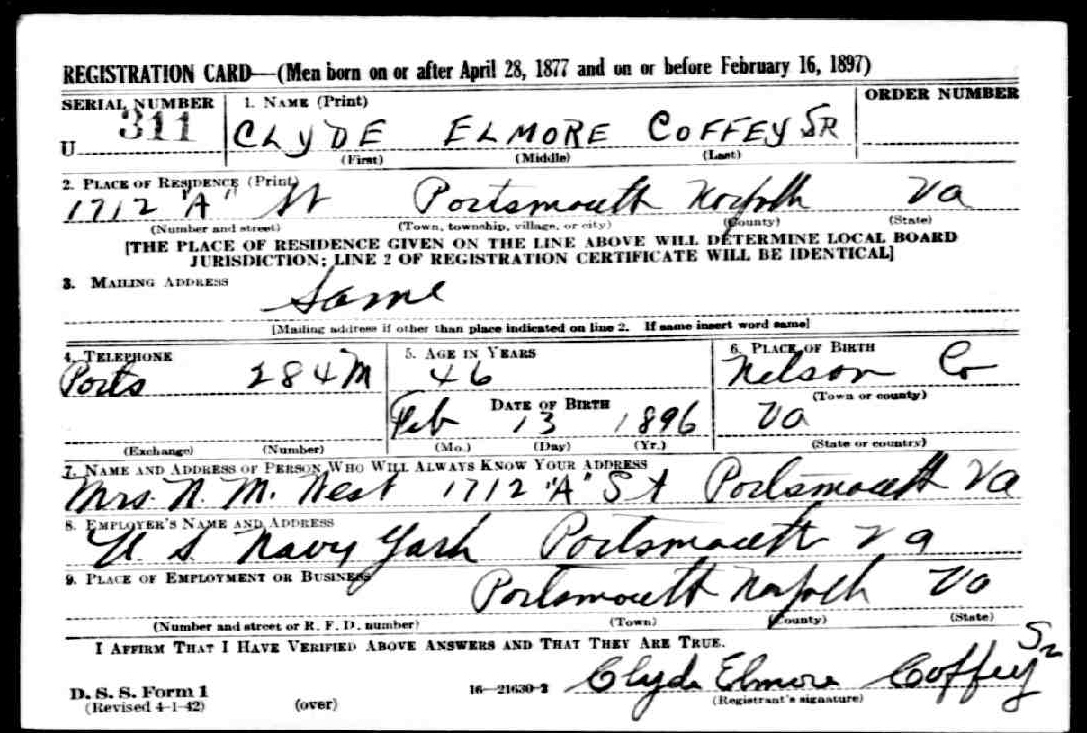 REGISTRATION CARD—(Men born on or after April 28, 1877 and on or before February 16, 1897)
SERIAL NUMBER 1. NAME (Print) ORDER NUMBER
U 311 CLYDE ELMORE COFFEY SR
(First) (Middle) (Last)
2. PLACE OF RESIDENCE (Print)
1712 "A" St Portsmouth Norfolk Va
(Number and street) (Town, township, village, or city) (County) (State)
[THE PLACE OF RESIDENCE GIVEN ON THE LINE ABOVE WILL DETERMINE LOCAL BOARD
JURISDICTION; LINE 2 OF REGISTRATION CERTIFICATE WILL BE IDENTICAL]
3. MAILING ADDRESS
Same
[Mailing address if other than place indicated on line 2. If same insert word same]
4. TELEPHONE 5. AGE IN YEARS 6. PLACE OF BIRTH
Ports 284M 46 Nelson Co
(Town or county)
DATE OF BIRTH
Feb 13 1896 Va
(Exchange) (Number) (Mo.) (Day) (Yr.) (State or country)
7. NAME AND ADDRESS OF PERSON WHO WILL ALWAYS KNOW YOUR ADDRESS
Mrs. N. M. West 1712 "A" St Portsmouth Va
8. EMPLOYER'S NAME AND ADDRESS
U S Navy Yard Portsmouth Va
9. PLACE OF EMPLOYMENT OR BUSINESS
Portsmouth Norfolk Va
(Number and street or R. F. D. number) (Town) (County) (State)
I AFFIRM THAT I HAVE VERIFIED ABOVE ANSWERS AND THAT THEY ARE TRUE.
Clyde Elmore Coffey Sr
D. S. S. Form 1 16—21630-2
(Revised 4-1-42) (over) (Registrant's signature)